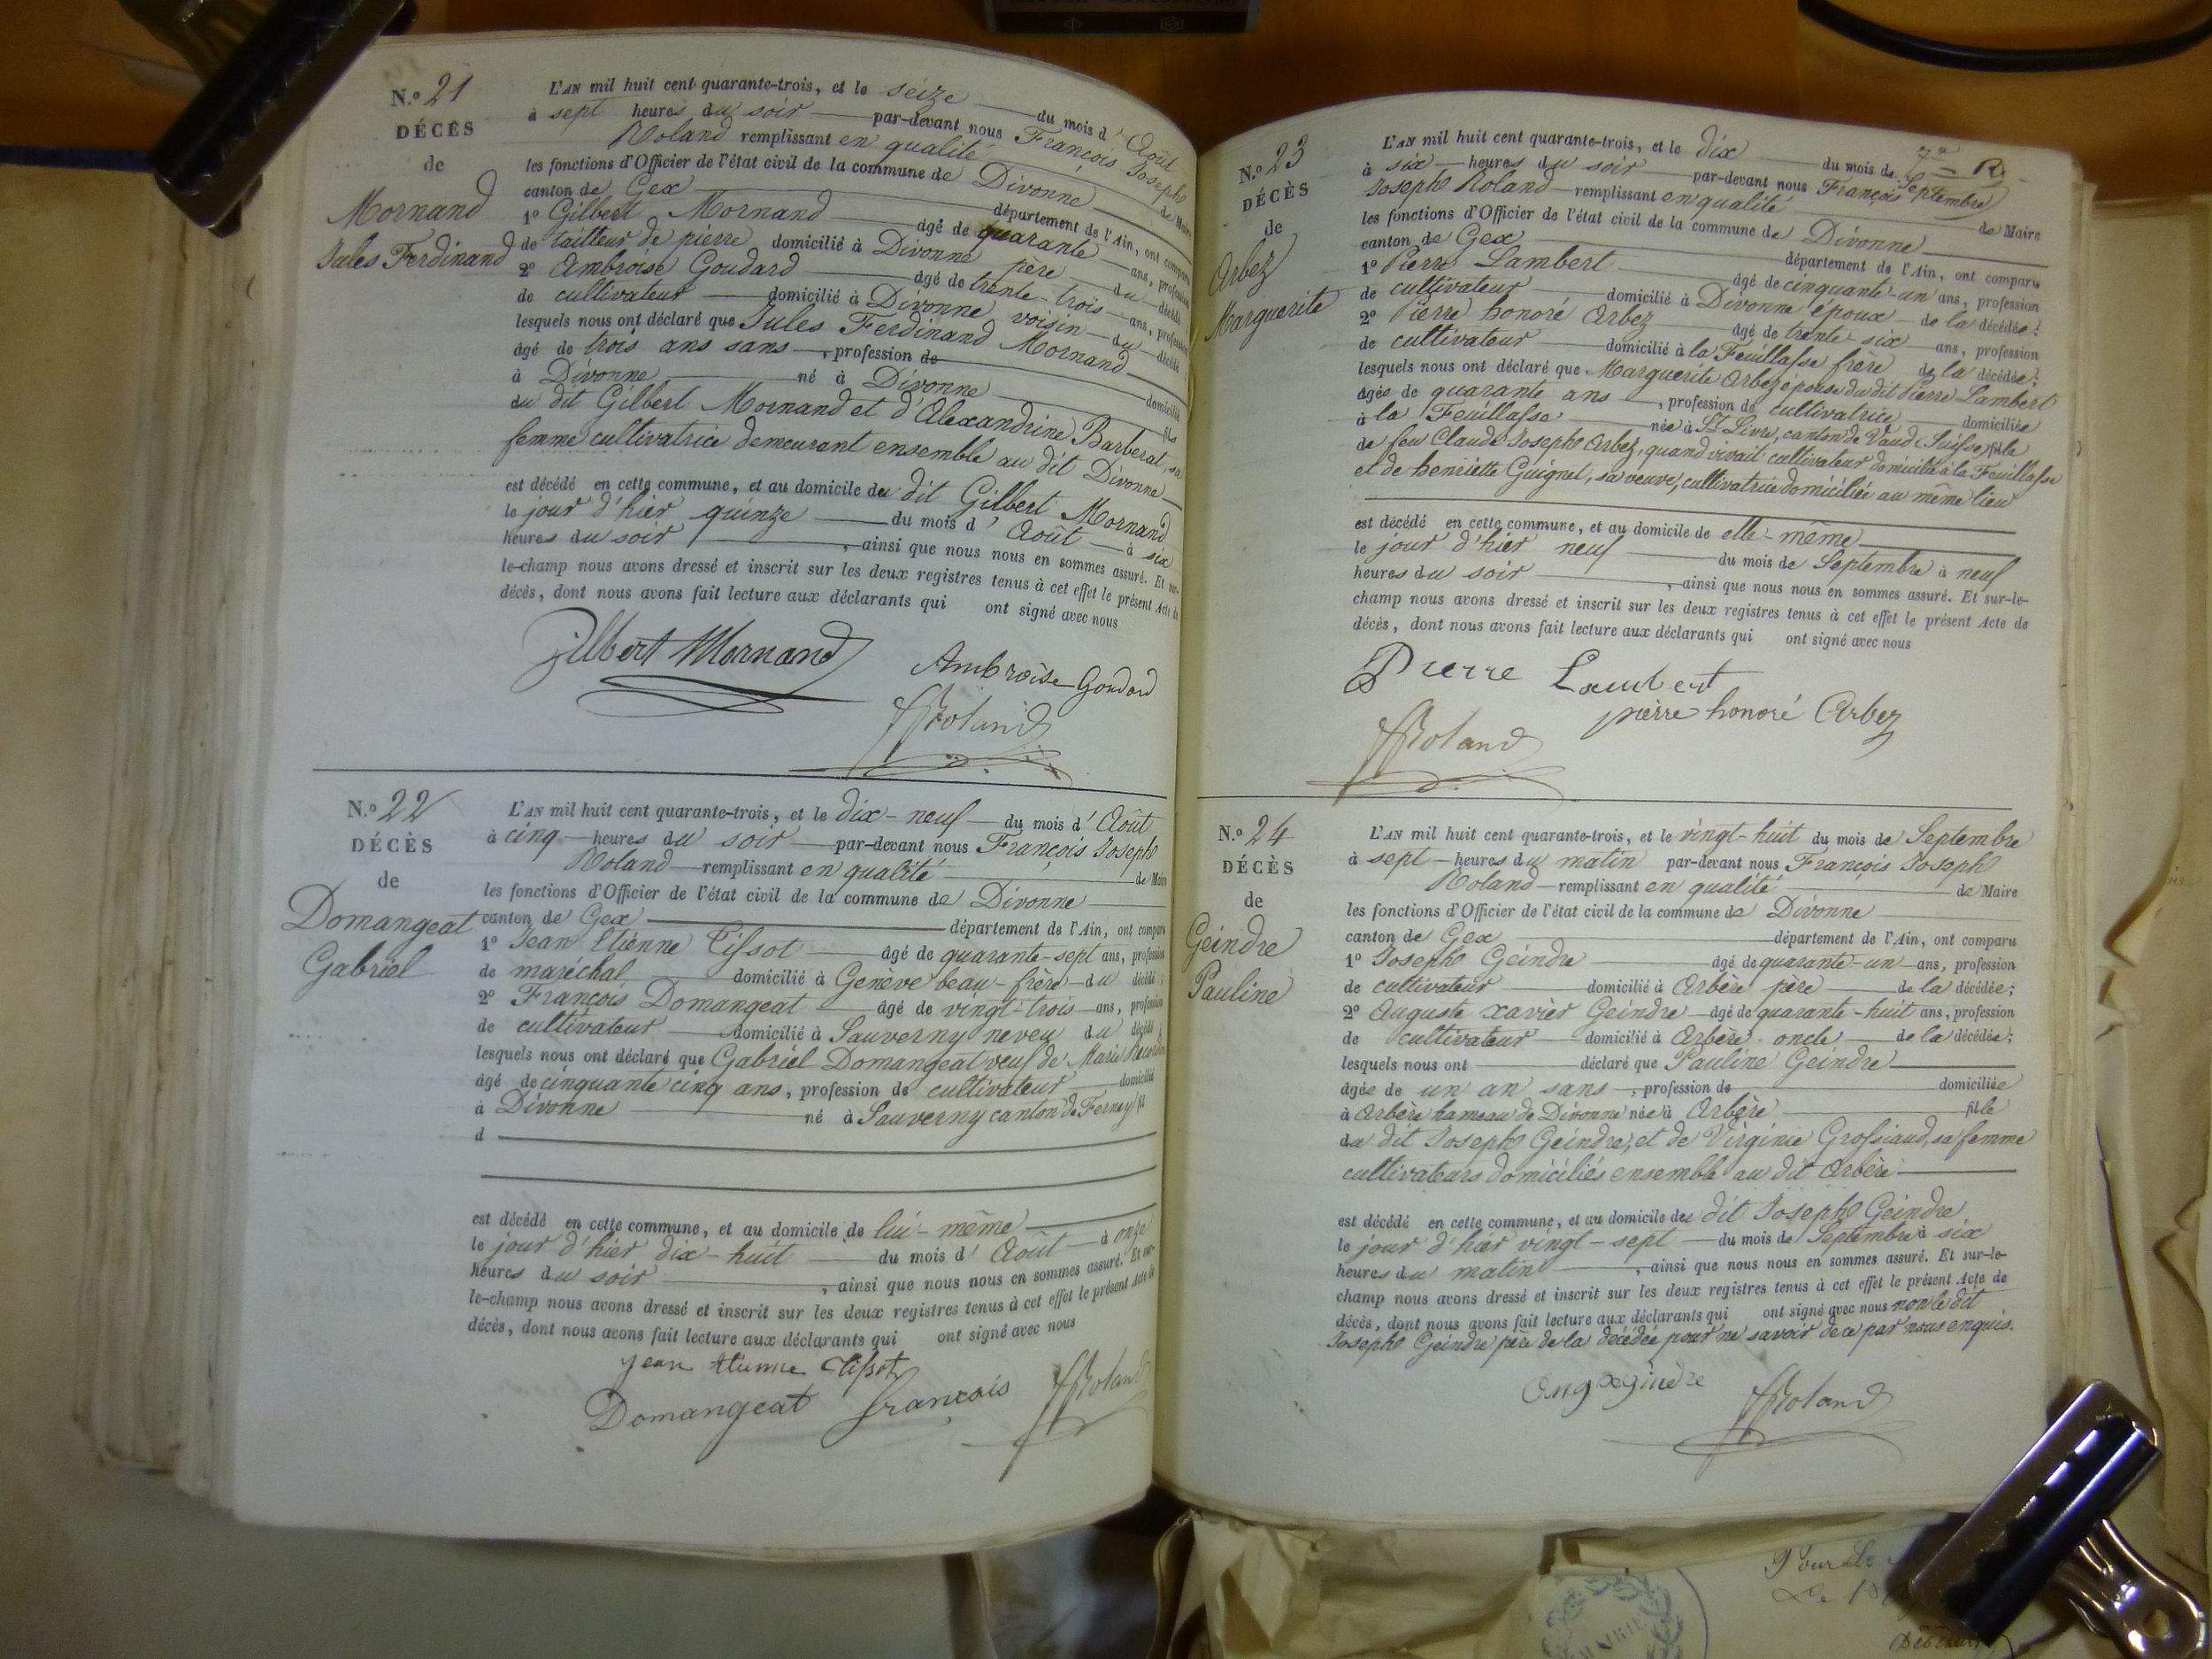 N.º 21
DÉCÈS
de
Mornand
Jules Ferdinand
L'AN mil huit cent quarante-trois, et le seize du mois d'Août
à sept heures du soir par-devant nous François Joseph
Roland remplissant en qualité de Maire
les fonctions d'Officier de l'état civil de la commune de Divonne
canton de Gex département de l'Ain, ont comparu
1º Gilbert Mornand agé de quarante ans, profession
de tailleur de pierre domicilié à Divonne père du décédé
2º Ambroise Goudard âgé de trente-trois ans, profession
de cultivateur domicilié à Divonne voisin du décédé
lesquels nous ont déclaré que Jules Ferdinand Mornand
âgé de trois ans sans, profession de domicilié
à Divonne né à Divonne fils
du dit Gilbert Mornand et d'Alexandrine Barberat, sa
femme cultivatrice demeurant ensemble au dit Divonne
est décédé en cette commune, et au domicile du dit Gilbert Mornand
le jour d'hier quinze du mois d'Août à six
heures du soir, ainsi que nous nous en sommes assuré. Et sur-
le-champ nous avons dressé et inscrit sur les deux registres tenus à cet effet le présent Acte de
décès, dont nous avons fait lecture aux déclarants qui ont signé avec nous
Gilbert Mornand
Ambroise Goudard
Roland
N.º 22
DÉCÈS
de
Domangeat
Gabriel
L'AN mil huit cent quarante-trois, et le dix-neuf du mois d'Août
à cinq heures du soir par-devant nous François Joseph
Roland remplissant en qualité de Maire
les fonctions d'Officier de l'état civil de la commune de Divonne
canton de Gex département de l'Ain, ont comparu
1º Jean Etienne Tissot âgé de quarante-sept ans, profession
de maréchal domicilié à Genève beau-frère du décédé;
2º François Domangeat âgé de vingt-trois ans, profession
de cultivateur domicilié à Sauverny neveu du décédé
lesquels nous ont déclaré que Gabriel Domangeat veuf de Marie
âgé de cinquante cinq ans, profession de cultivateur domicilié
à Divonne né à Sauverny canton de Ferney fils
d
est décédé en cette commune, et au domicile de lui-même
le jour d'hier dix-huit du mois d'Août à onze
heures du soir, ainsi que nous nous en sommes assuré. Et sur-
le-champ nous avons dressé et inscrit sur les deux registres tenus à cet effet le présent Acte de
décès, dont nous avons fait lecture aux déclarants qui ont signé avec nous
jean etienne tissot
Domangeat françois
Roland
7e R
N.º 23
DÉCÈS
de
Arbez
Marguerite
L'AN mil huit cent quarante-trois, et le dix du mois de Septembre
à six heures du soir par-devant nous François
Joseph Roland remplissant en qualité de Maire
les fonctions d'Officier de l'état civil de la commune de Divonne
canton de Gex département de l'Ain, ont comparu
1º Pierre Lambert âgé de cinquante-un ans, profession
de cultivateur domicilié à Divonne époux de la décédée;
2º Pierre honoré Arbez âgé de trente-six ans, profession
de cultivateur domicilié à la Feuillasse frère de la décédée;
lesquels nous ont déclaré que Marguerite Arbez épouse du dit Pierre Lambert
âgée de quarante ans, profession de cultivatrice domiciliée
à la Feuillasse née à St Livre, canton de Vaud (Suisse) fille
de feu Claude Joseph Arbez, quand vivait cultivateur domicilié à la Feuillasse
et de henriette Guignet, sa veuve, cultivatrice domiciliée au même lieu
est décédé en cette commune, et au domicile de elle-même
le jour d'hier neuf du mois de Septembre à neuf
heures du soir, ainsi que nous nous en sommes assuré. Et sur-le-
champ nous avons dressé et inscrit sur les deux registres tenus à cet effet le présent Acte de
décès, dont nous avons fait lecture aux déclarants qui ont signé avec nous
Pierre Lambert
pierre honoré Arbez
Roland
N.º 24
DÉCÈS
de
Geindre
Pauline
L'AN mil huit cent quarante-trois, et le vingt-huit du mois de Septembre
à sept heures du matin par-devant nous François Joseph
Roland remplissant en qualité de Maire
les fonctions d'Officier de l'état civil de la commune de Divonne
canton de Gex département de l'Ain, ont comparu
1º Joseph Geindre âgé de quarante-un ans, profession
de cultivateur domicilié à Arbère père de la décédée;
2º Auguste xavier Geindre âgé de quarante-huit ans, profession
de cultivateur domicilié à Arbère oncle de la décédée;
lesquels nous ont déclaré que Pauline Geindre
âgée de un an sans, profession de domiciliée
à Arbère hameau de Divonne née à Arbère fille
du dit Joseph Geindre, et de Virginie Grossiaud, sa femme
cultivateurs domiciliés ensemble au dit Arbère
est décédé en cette commune, et au domicile du dit Joseph Geindre
le jour d'hier vingt-sept du mois de Septembre à six
heures du matin, ainsi que nous nous en sommes assuré. Et sur-le-
champ nous avons dressé et inscrit sur les deux registres tenus à cet effet le présent Acte de
décès, dont nous avons fait lecture aux déclarants qui ont signé avec nous non le dit
Joseph Geindre père de la décédée pour ne savoir de ce par nous enquis.
Aug x gindre
Roland
Pour le
Le 18